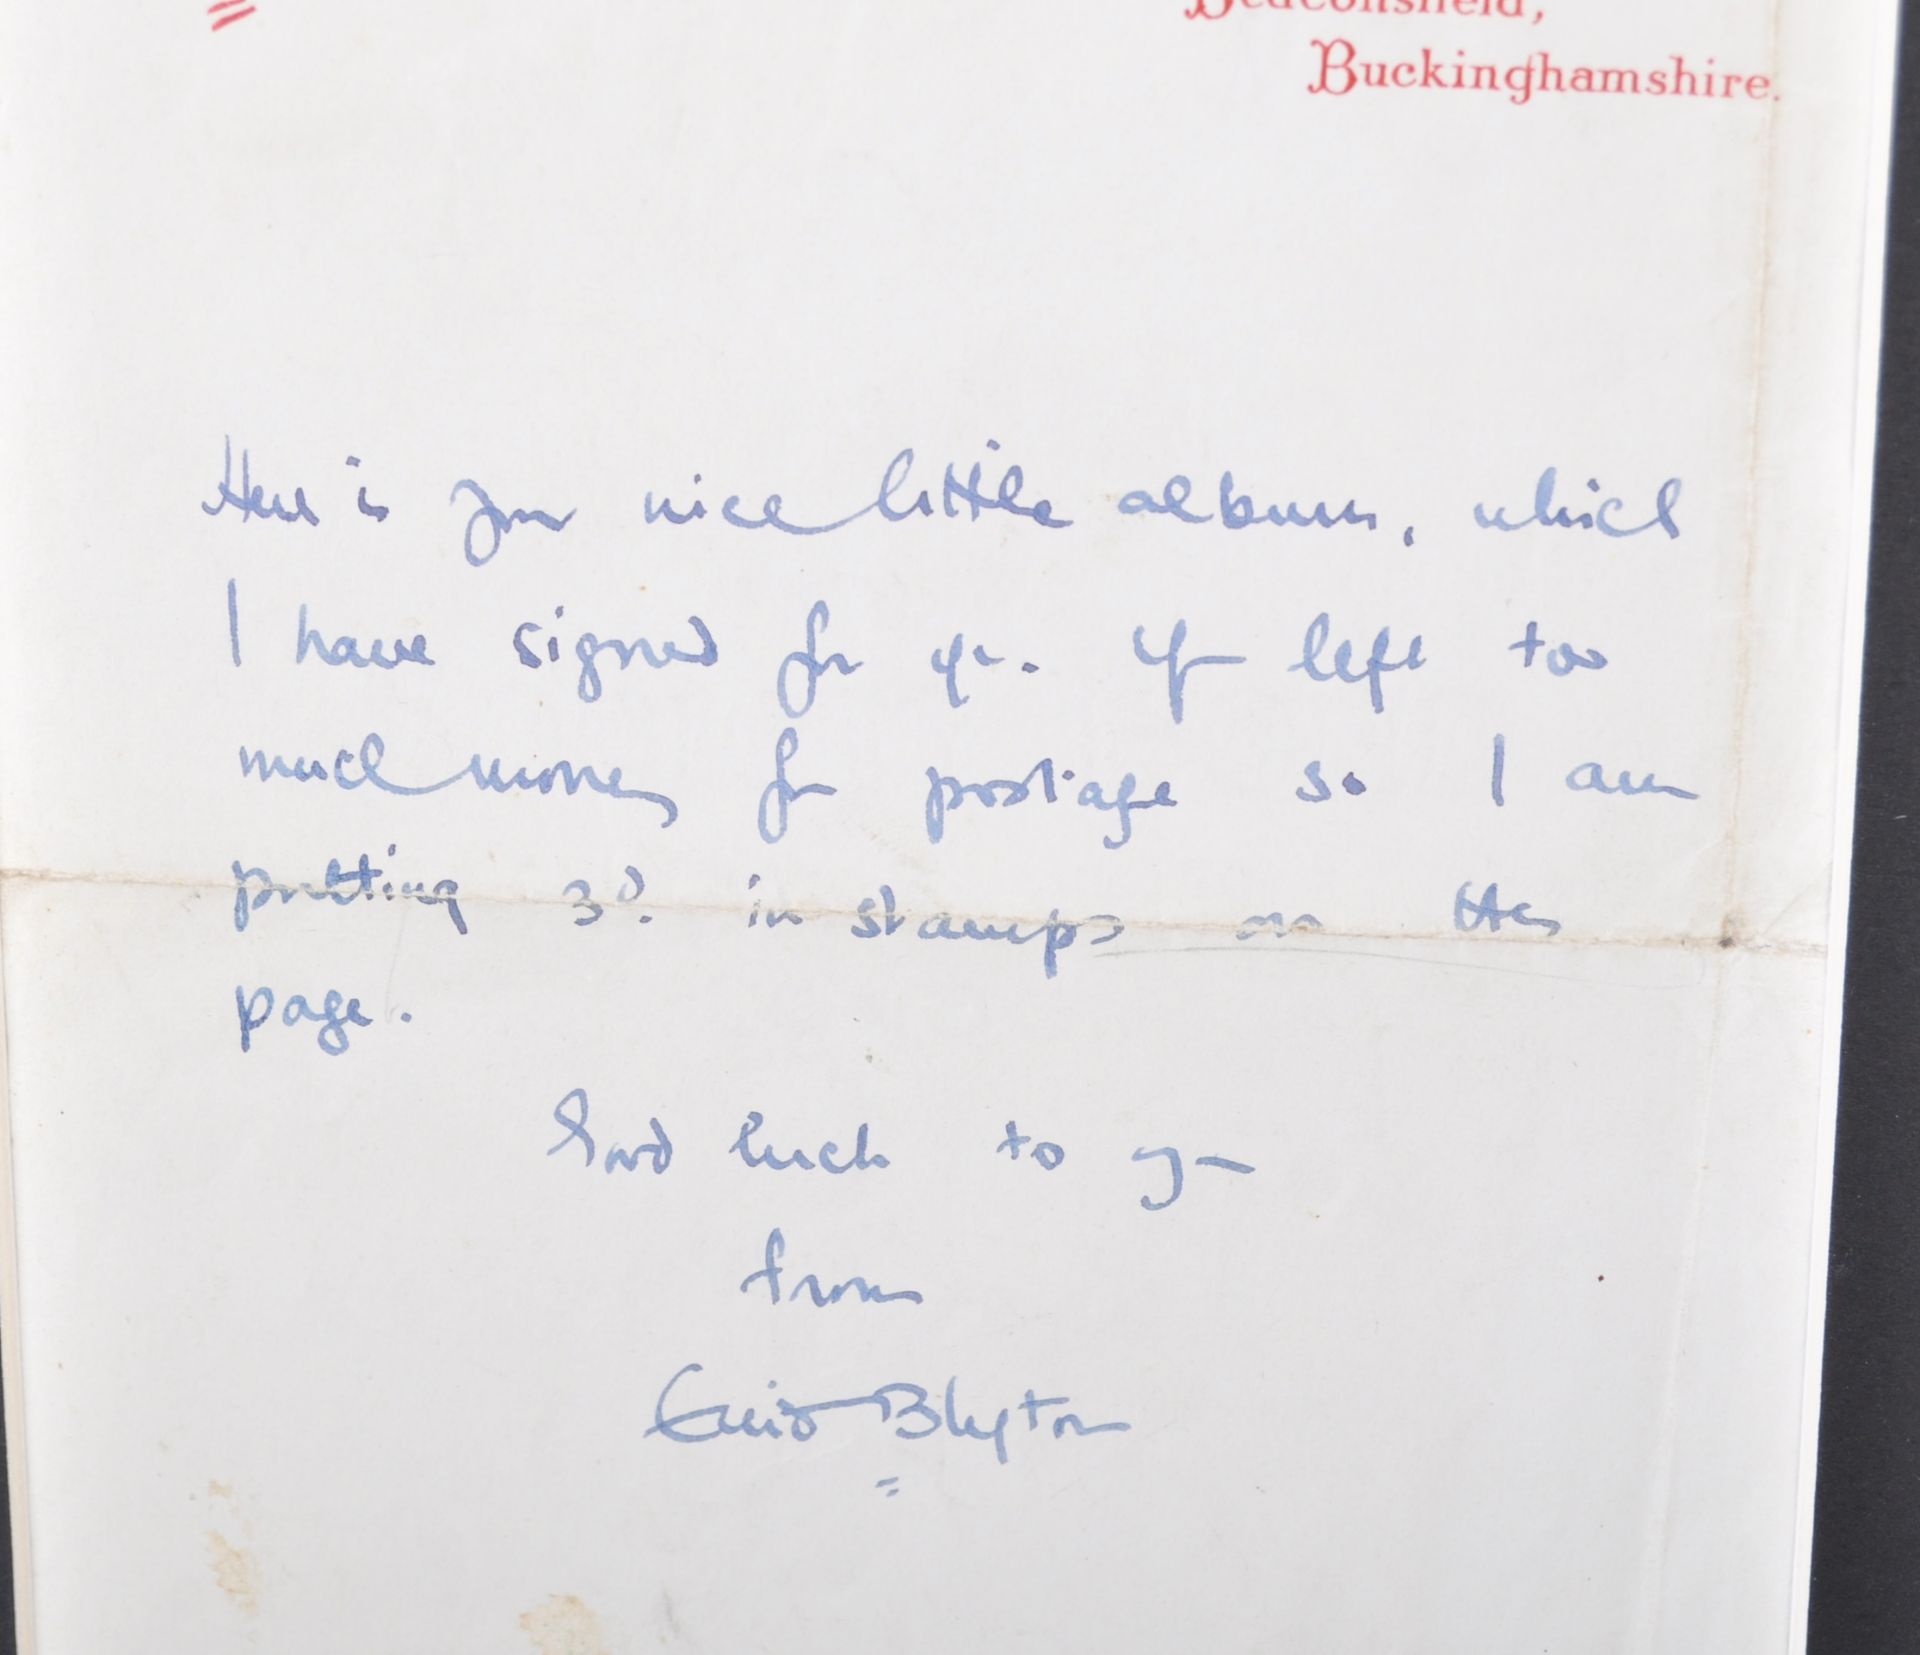 Beaconsfield,
Buckinghamshire.
Here is your nice little album, which
I have signed for you. You left too
much money for postage so I am
putting 3d. in stamps on this
page.
Good luck to you
from
Enid Blyton